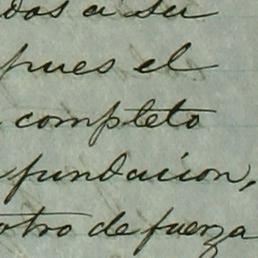 dos a su
pues el
completo
fundacion,
otro de fuerza